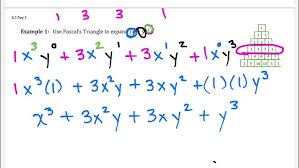 6.2 Day 2
1 3 3 1
Example 1: Use Pascal's Triangle to expand
1x³y⁰ + 3x²y¹ + 3x¹y² + 1x⁰y³
1x³(1) + 3x²y + 3xy² + (1)(1)y³
x³ + 3x²y + 3xy² + y³